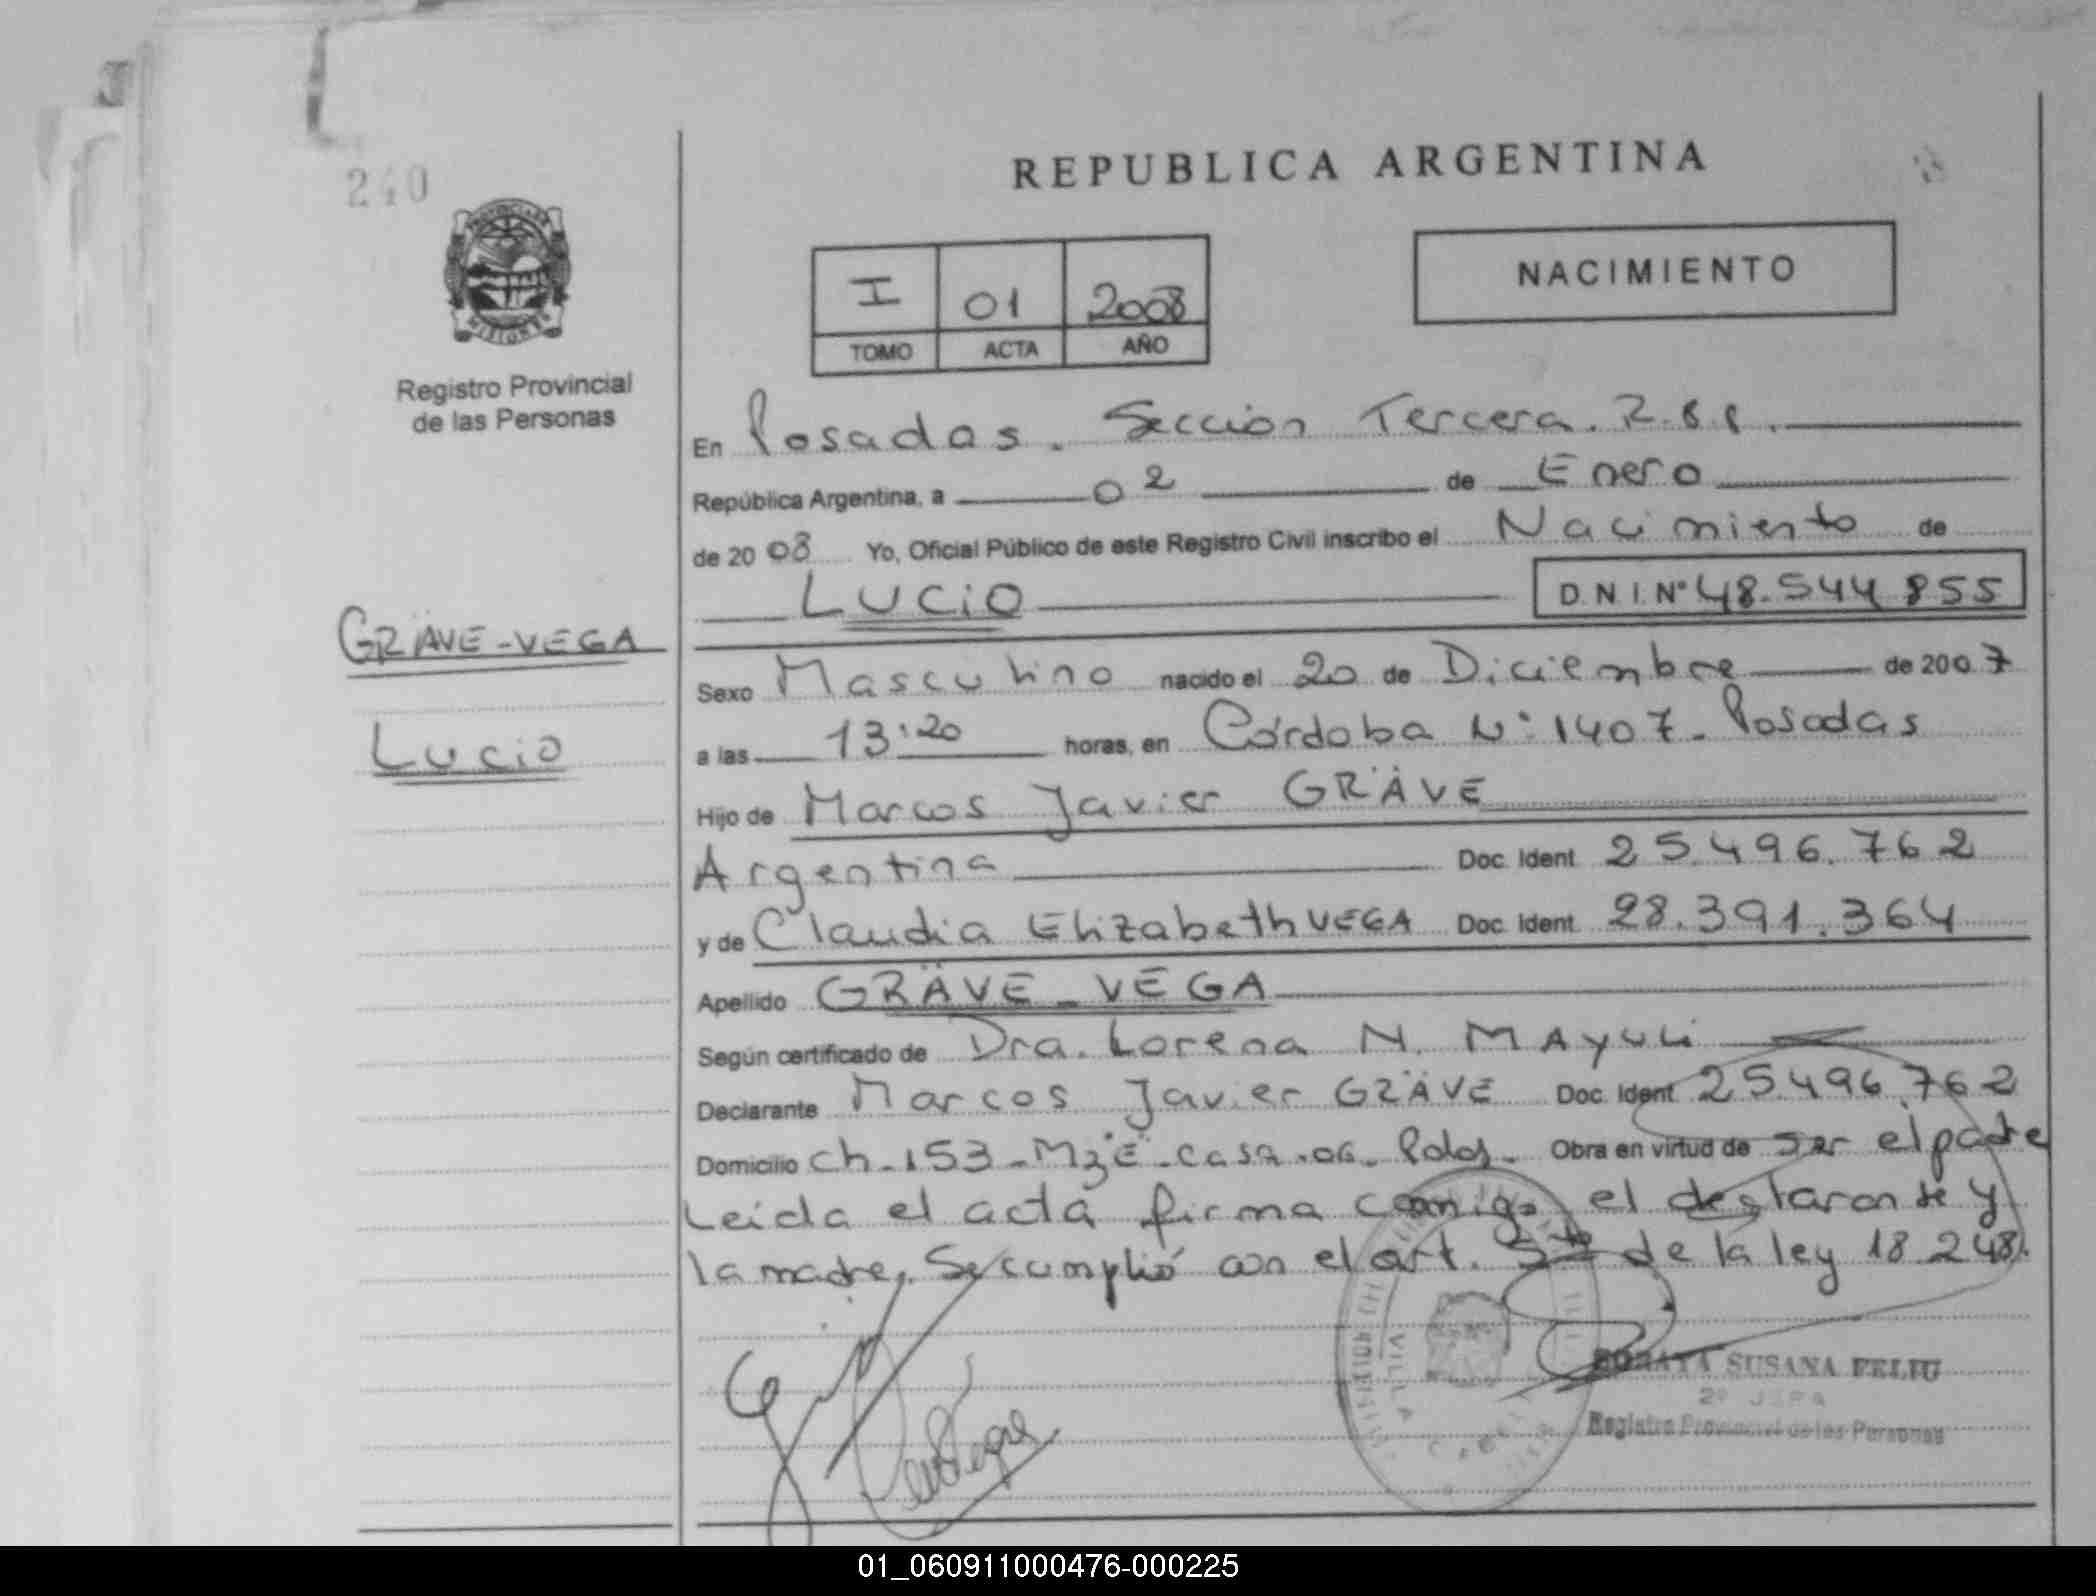 240
REPUBLICA ARGENTINA
I 01 2008
TOMO ACTA AÑO
NACIMIENTO
Registro Provincial
de las Personas
En Posadas. Sección Tercera.
República Argentina, a 02 de Enero
de 2008 Yo, Oficial Público de este Registro Civil inscribo el Nacimiento de
LUCIO D.N.I. Nº 48.544.855
GRÄVE-VEGA
Lucio
Sexo Masculino nacido el 20 de Diciembre de 2007
a las 13:20 horas, en Córdoba Nº 1407. Posadas
Hijo de Marcos Javier GRÄVE
Argentina Doc. Ident 25.496.762
y de Claudia Elizabeth VEGA Doc. Ident 28.391.364
Apellido GRÄVE-VEGA
Según certificado de Dra. Lorena N. MAYULI
Declarante Marcos Javier GRÄVE Doc. Ident 25.496.762
Domicilio ch-153-Mz"E"-casa.06- Obra en virtud de ser el padre
Leída el acta firma conmigo el declarante y
la madre. Se cumplió con el art. 5to de la ley 18.248.
VILLA CABELLO
SORAYA SUSANA FELIU
2º JEFA
Registro Provincial de las Personas
01_060911000476-000225